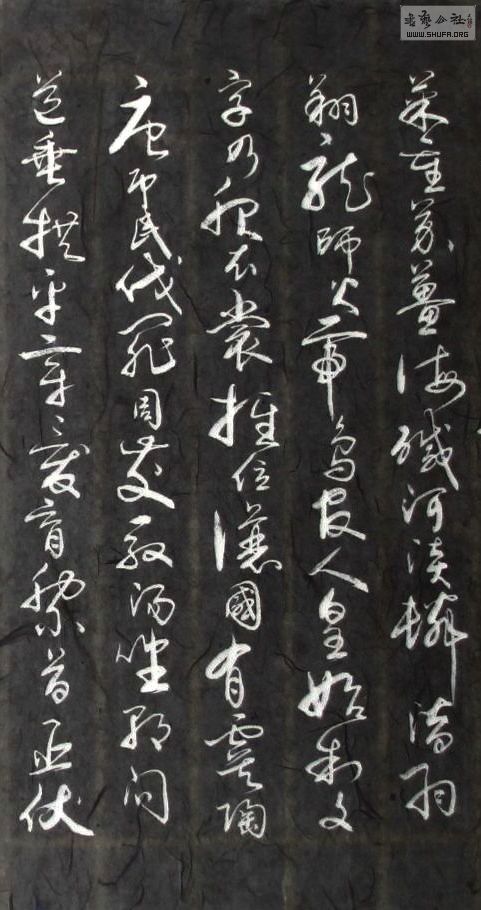 菜重芥薑海鹹河淡鱗潛羽
翔龍師火帝鳥官人皇始制文
字乃服衣裳推位讓國有虞陶
唐弔民伐罪周發殷湯坐朝問
道垂拱平章愛育黎首臣伏
書藝公社
WWW.SHUFA.ORG